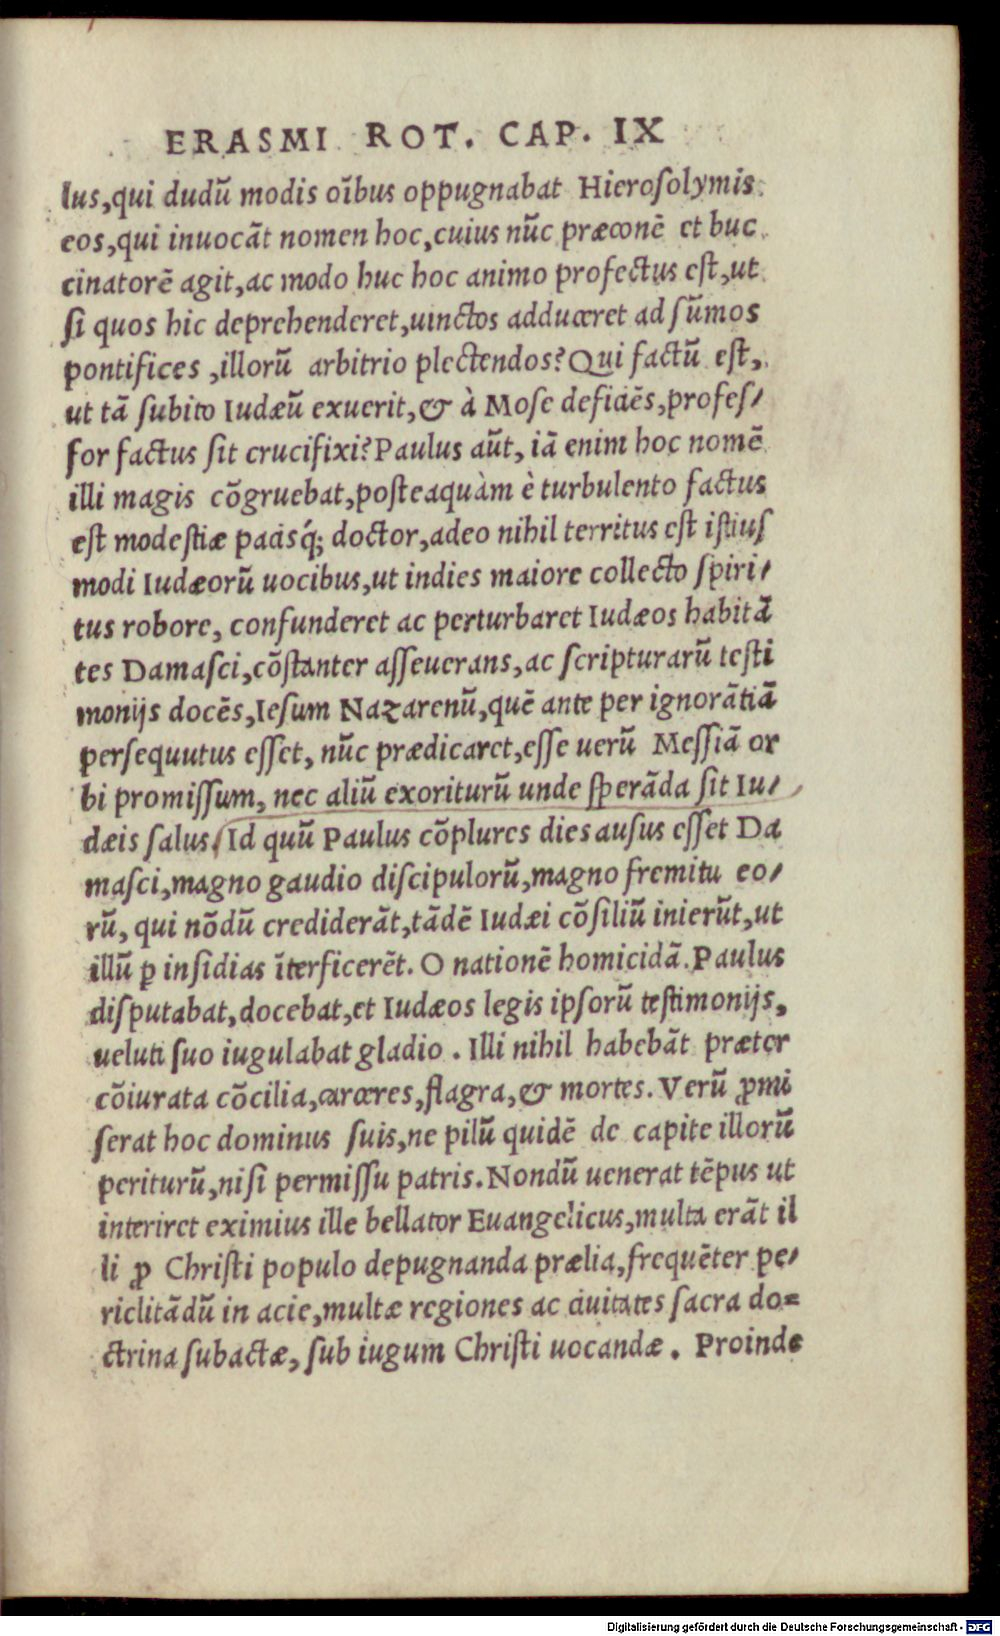 ERASMI ROT. CAP. IX
lus, qui dudū modis oībus oppugnabat Hierosolymis
eos, qui inuocāt nomen hoc, cuius nūc præconē et buc
cinatorē agit, ac modo huc hoc animo profectus est, ut
si quos hic deprehenderet, uinctos adduceret ad sūmos
pontifices, illorū arbitrio plectendos? Qui factū est,
ut tā subito Iudæū exuerit, & à Mose deficiēs, profes/
sor factus sit crucifixi? Paulus aūt, iā enim hoc nomē
illi magis cōgruebat, posteaquàm è turbulento factus
est modestiæ pacisq́; doctor, adeo nihil territus est istius
modi Iudæorū uocibus, ut indies maiore collecto spiri/
tus robore, confunderet ac perturbaret Iudæos habitā
tes Damasci, cōstanter asseuerans, ac scripturarū testi
monijs docēs, Iesum Nazarenū, quē ante per ignorātiā
persequutus esset, nūc prædicaret, esse uerū Messiā or
bi promissum, nec aliū exoriturū unde sperāda sit Iu/
dæis salus. Id quū Paulus cōplures dies ausus esset Da
masci, magno gaudio discipulorū, magno fremitu eo/
rū, qui nōdū crediderāt, tādē Iudæi cōsiliū inierūt, ut
illū ꝑ insidias īterficerēt. O nationē homicidā. Paulus
disputabat, docebat, et Iudæos legis ipsorū testimonijs,
ueluti suo iugulabat gladio. Illi nihil habebāt præter
cōiurata cōcilia, carceres, flagra, & mortes. Verū ꝓmi
serat hoc dominus suis, ne pilū quidē de capite illorū
periturū, nisi permissu patris. Nondū uenerat tēpus ut
interiret eximius ille bellator Euangelicus, multa erāt il
li ꝓ Christi populo depugnanda prælia, frequēter pe/
riclitādū in acie, multæ regiones ac ciuitates sacra do=
ctrina subactæ, sub iugum Christi uocandæ. Proinde
Digitalisierung gefördert durch die Deutsche Forschungsgemeinschaft - DFG